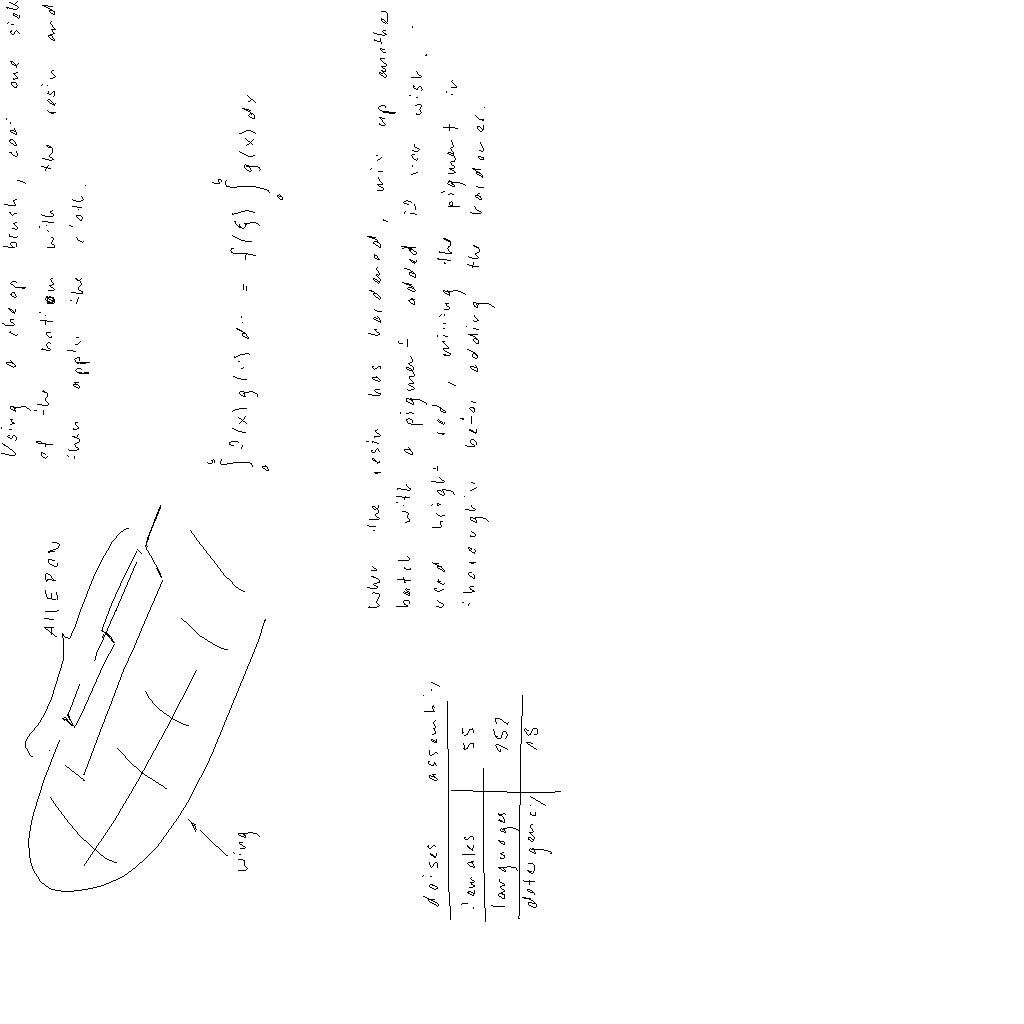 Using a cheap brush, coat one side
of the bottom with the resin and
then apply the cloth.
AILERON
wing
∫_a^b f(x) g(x) dx = f(ξ) ∫_a^b g(x) dx
When the resin has hardened, mix up another
batch with a pigment added if you wish.
used bright red, mixing the pigment in
thoroughly before adding the hardener.
daises assembly
females 55
languages 952
detergency 18